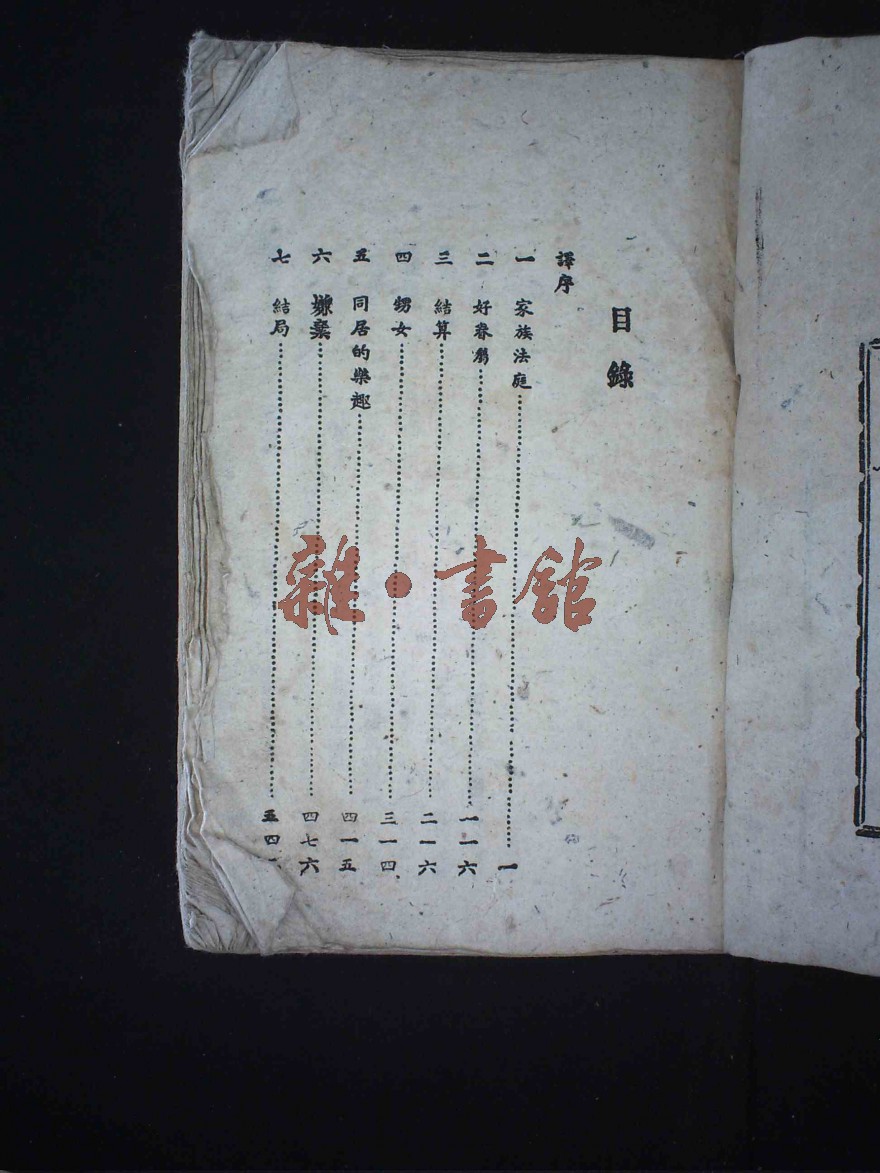 目錄
譯序
一 家族法庭……一
二 好眷屬……一一六
三 結算……二一六
四 甥女……三一四
五 同居的樂趣……四一五
六 嫌棄……四七六
七 結局……五四
雜·書館